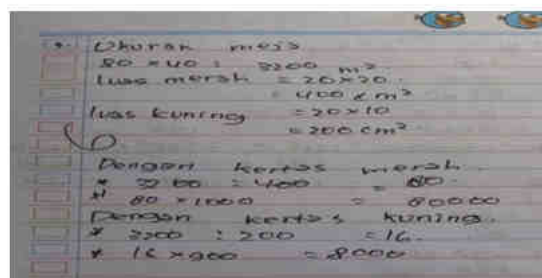 Ukuran meja
80 x 40 : 3200 m²
luas merah = 20 x 20.
= 400 c m²
luas kuning = 20 x 10
= 200 cm²
Dengan kertas merah.
* 3200 : 400 = 80.
* 80 x 1000 = 80000
Dengan kertas kuning.
* 3200 : 200 = 16.
* 16 x 900 = 8000